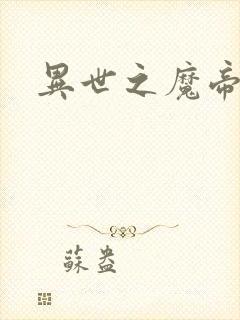 異世之魔帝
蘇盎